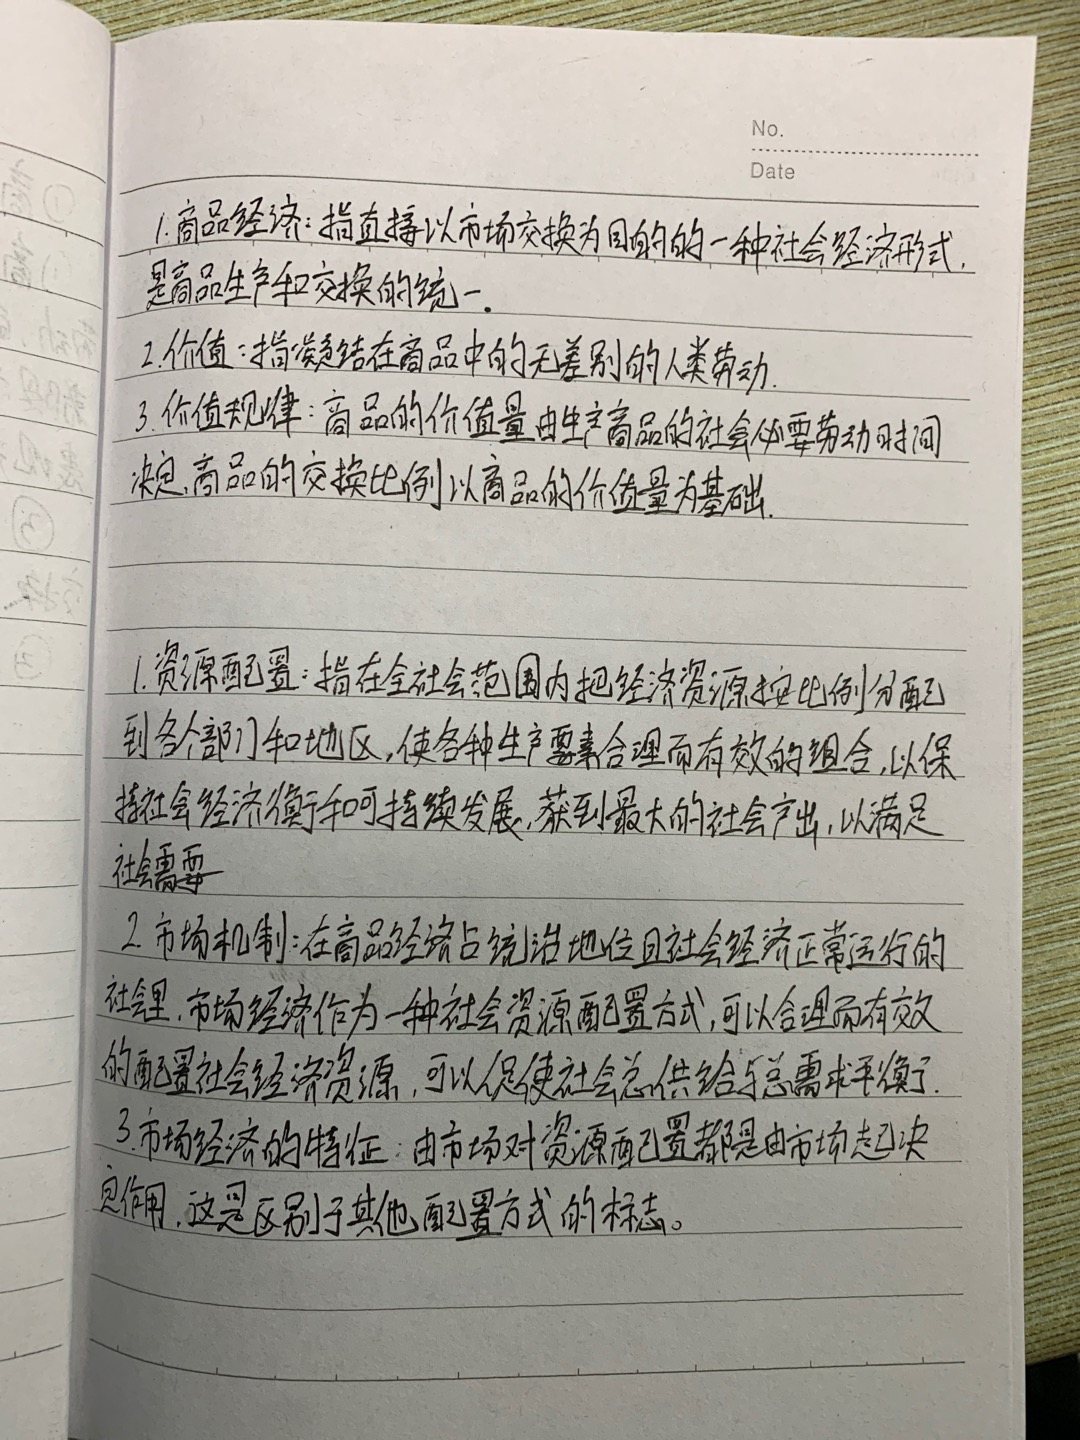 No.
Date
1.商品经济：指直接以市场交换为目的的一种社会经济形式，
是商品生产和交换的统一。
2.价值：指凝结在商品中的无差别的人类劳动.
3.价值规律：商品的价值量由生产商品的社会必要劳动时间
决定，商品的交换比例以商品的价值量为基础.
1.资源配置：指在全社会范围内把经济资源按比例分配
到各个部门和地区，使各种生产要素合理而有效的组合，以保
持社会经济衡和可持续发展，获到最大的社会产出，以满足
社会需要
2.市场机制：在商品经济占统治地位且社会经济正常运行的
社会里，市场经济作为一种社会资源配置方式，可以合理而有效
的配置社会经济资源，可以促使社会总供给与总需求平衡了.
3.市场经济的特征：由市场对资源配置都是由市场起决
定作用，这是区别于其他配置方式的标志。